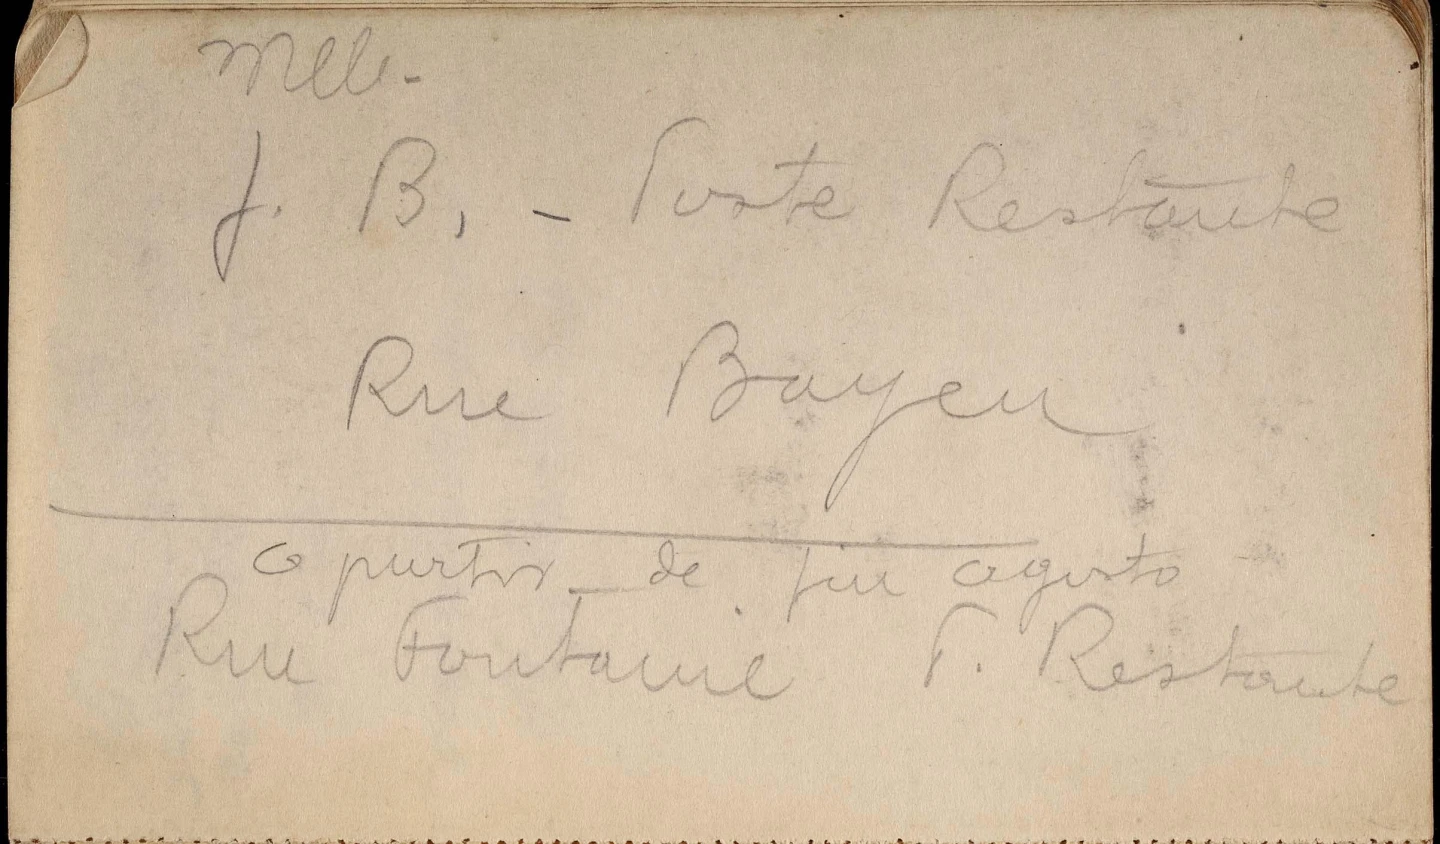 Mlle.
J. B. - Poste Restante
Rue Bayen
a partir de fin agosto
Rue Fontaine P. Restante